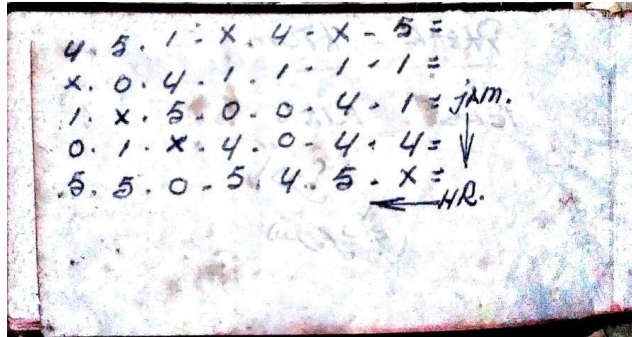 4.5.1-x.4-x-5=
x.0.4.1.1-1.1=
1.x.5.0.0.4.1= jAm.
0.1.x.4.0.4.4=
5.5.0-5.4.5.x=
HR.